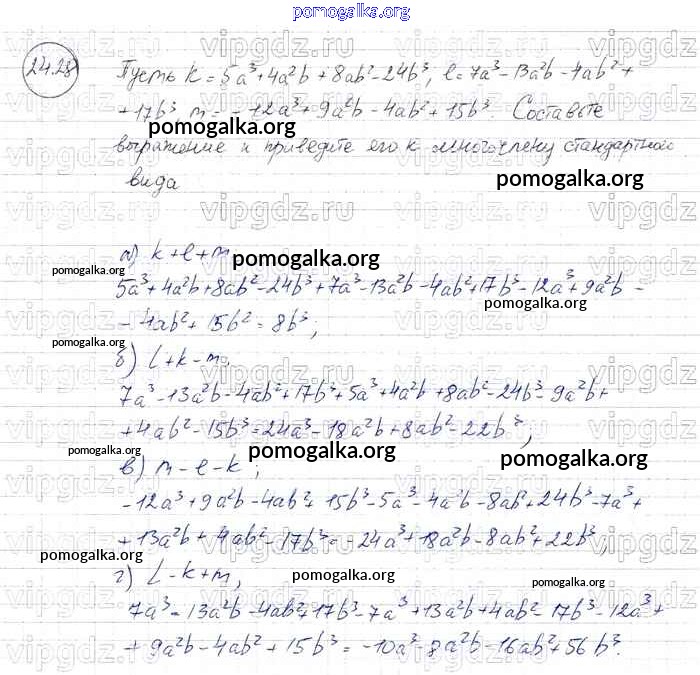 pomogalka.org
24.28
Пусть k = 5a³+4a²b + 8ab²-24b³, l=7a³-13a²b-4ab²+
+17b³, m = -12a³+9a²b-4ab²+15b³. Составьте
pomogalka.org
выражение и приведите его к многочлену стандартного
вида
pomogalka.org
а) k+l+m
pomogalka.org
pomogalka.org
5a³+4a²b+8ab²-24b³+7a³-13a²b-4ab²+17b³-12a³+9a²b-
pomogalka.org
-4ab²+15b²=8b³,
pomogalka.org
б) l+k-m,
7a³-13a²b-4ab²+17b³+5a³+4a²b+8ab²-24b³-9a²b+
+4ab²-15b³=24a³-18a²b+8ab²-22b³,
pomogalka.org
pomogalka.org
pomogalka.org
в) m-l-k;
-12a³+9a²b-4ab²+15b³-5a³-4a²b-8ab²+24b³-7a³+
+13a²b+4ab²-17b³=-24a³+18a²b-8ab²+22b³,
pomogalka.org
г) l-k+m,
pomogalka.org
pomogalka.org
7a³-13a²b-4ab²+17b³-7a³+13a²b+4ab²-17b³-12a³+
+9a²b-4ab²+15b³=-10a³-8a²b-16ab²+56b³.
vipgdz.ru